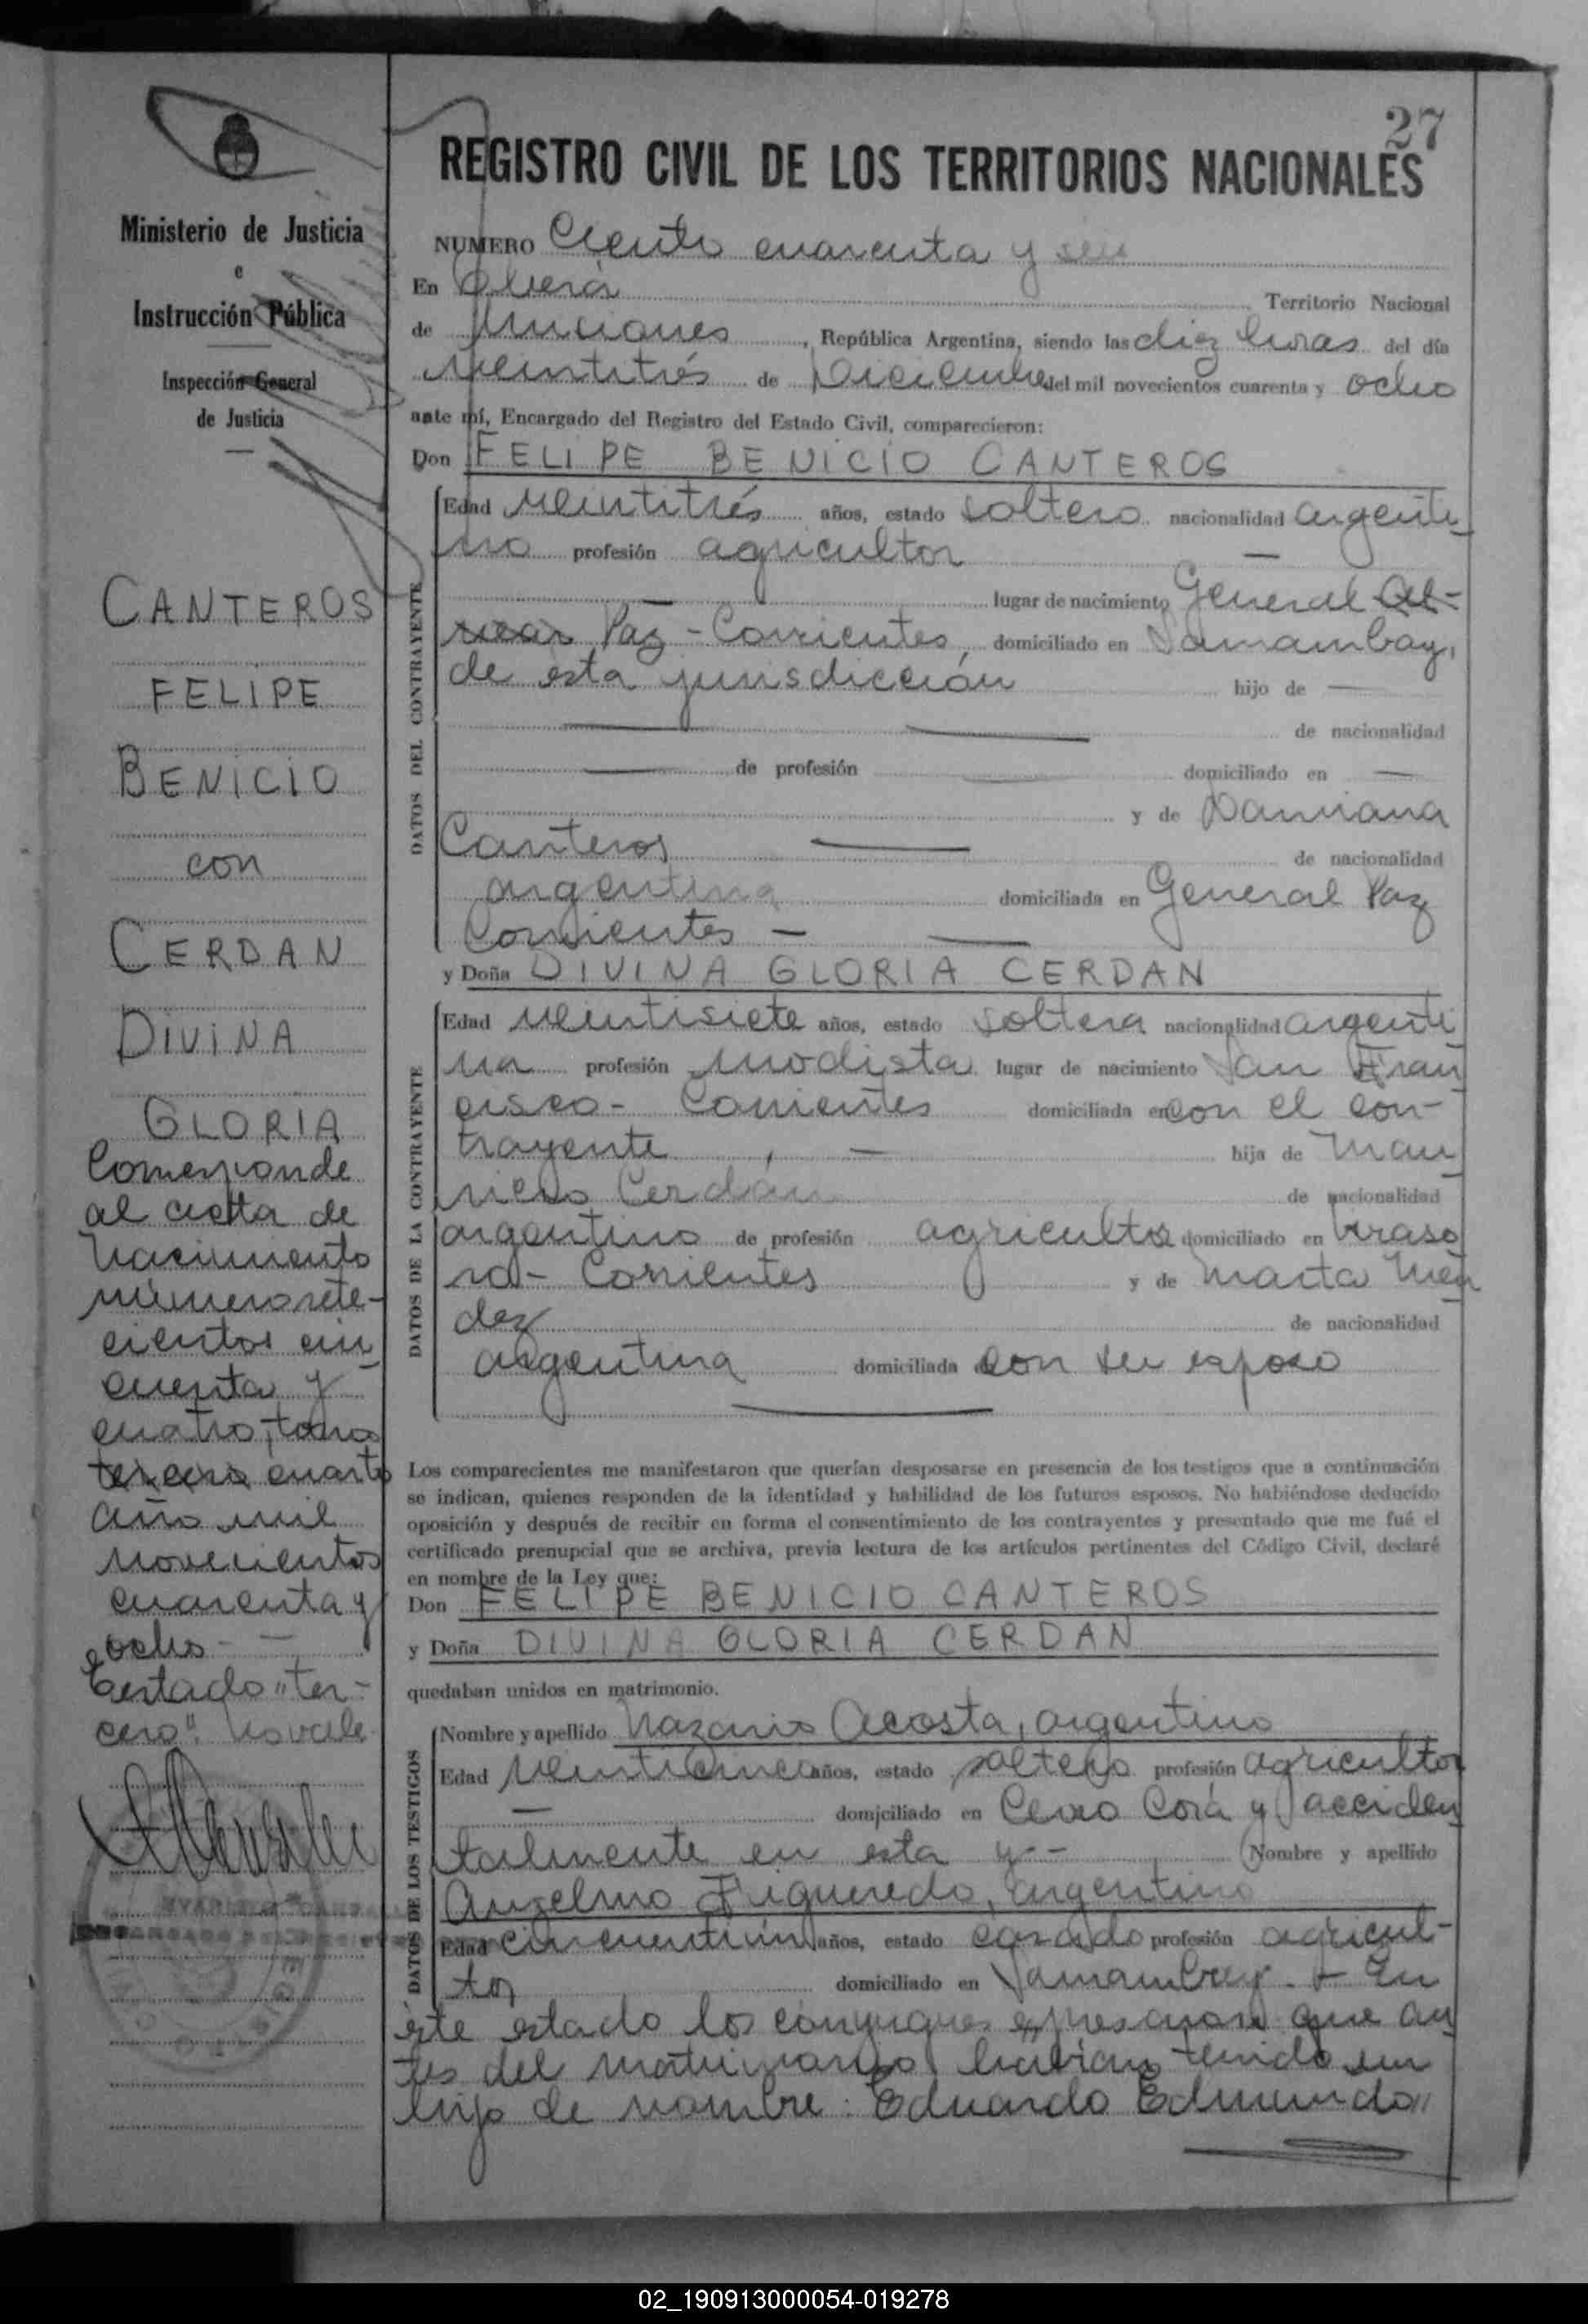 27
REGISTRO CIVIL DE LOS TERRITORIOS NACIONALES
Ministerio de Justicia
e
Instrucción Pública
Inspección General
de Justicia
NUMERO Ciento cuarenta y seis
En Oberá Territorio Nacional
de Misiones, República Argentina, siendo las diez horas del día
veintitrés de Diciembre del mil novecientos cuarenta y ocho
ante mí, Encargado del Registro del Estado Civil, comparecieron:
Don FELIPE BENICIO CANTEROS
DATOS DEL CONTRAYENTE
Edad veintitrés años, estado soltero nacionalidad argenti-
no profesión agricultor —
— lugar de nacimiento General
Paz - Corrientes, domiciliado en Samambay,
de esta jurisdicción hijo de —
— — de nacionalidad
— de profesión — domiciliado en —
y de Damiana
Canteros — de nacionalidad
argentina domiciliada en General Paz
Corrientes - —
y Doña DIVINA GLORIA CERDAN
DATOS DE LA CONTRAYENTE
Edad veintisiete años, estado soltera nacionalidad argenti
na profesión modista lugar de nacimiento San Fran
cisco - Corrientes domiciliada en con el con-
trayente, — hija de Mau
ricio Cerdán de nacionalidad
argentino de profesión agricultor domiciliado en Viraso
ro - Corrientes y de Marta Mén
dez de nacionalidad
argentina domiciliada con su esposo
Los comparecientes me manifestaron que querían desposarse en presencia de los testigos que a continuación
se indican, quienes responden de la identidad y habilidad de los futuros esposos. No habiéndose deducido
oposición y después de recibir en forma el consentimiento de los contrayentes y presentado que me fué el
certificado prenupcial que se archiva, previa lectura de los artículos pertinentes del Código Civil, declaré
en nombre de la Ley que:
Don FELIPE BENICIO CANTEROS
y Doña DIVINA GLORIA CERDAN
quedaban unidos en matrimonio.
DATOS DE LOS TESTIGOS
Nombre y apellido Nazario Acosta, argentino
Edad veinticinco años, estado soltero profesión agricultor
— domiciliado en Cerro Corá y accciden
talmente en esta y -- Nombre y apellido
Anselmo Figueredo, argentino
Edad cincuentiún años, estado casado profesión agricul-
tor domiciliado en Samambay. - En
este estado los cónyuges expresaron que an
tes del matrimonio habían tenido un
hijo de nombre: Eduardo Edmundo,,
CANTEROS
FELIPE
BENICIO
con
CERDAN
DIVINA
GLORIA
Corresponde
al acta de
nacimiento
número sete-
cientos cin
cuenta y
cuatro, tomo
tercero cuarto
año mil
novecientos
cuarenta y
ocho - —
Testado "ter-
cero". No vale
02_190913000054-019278